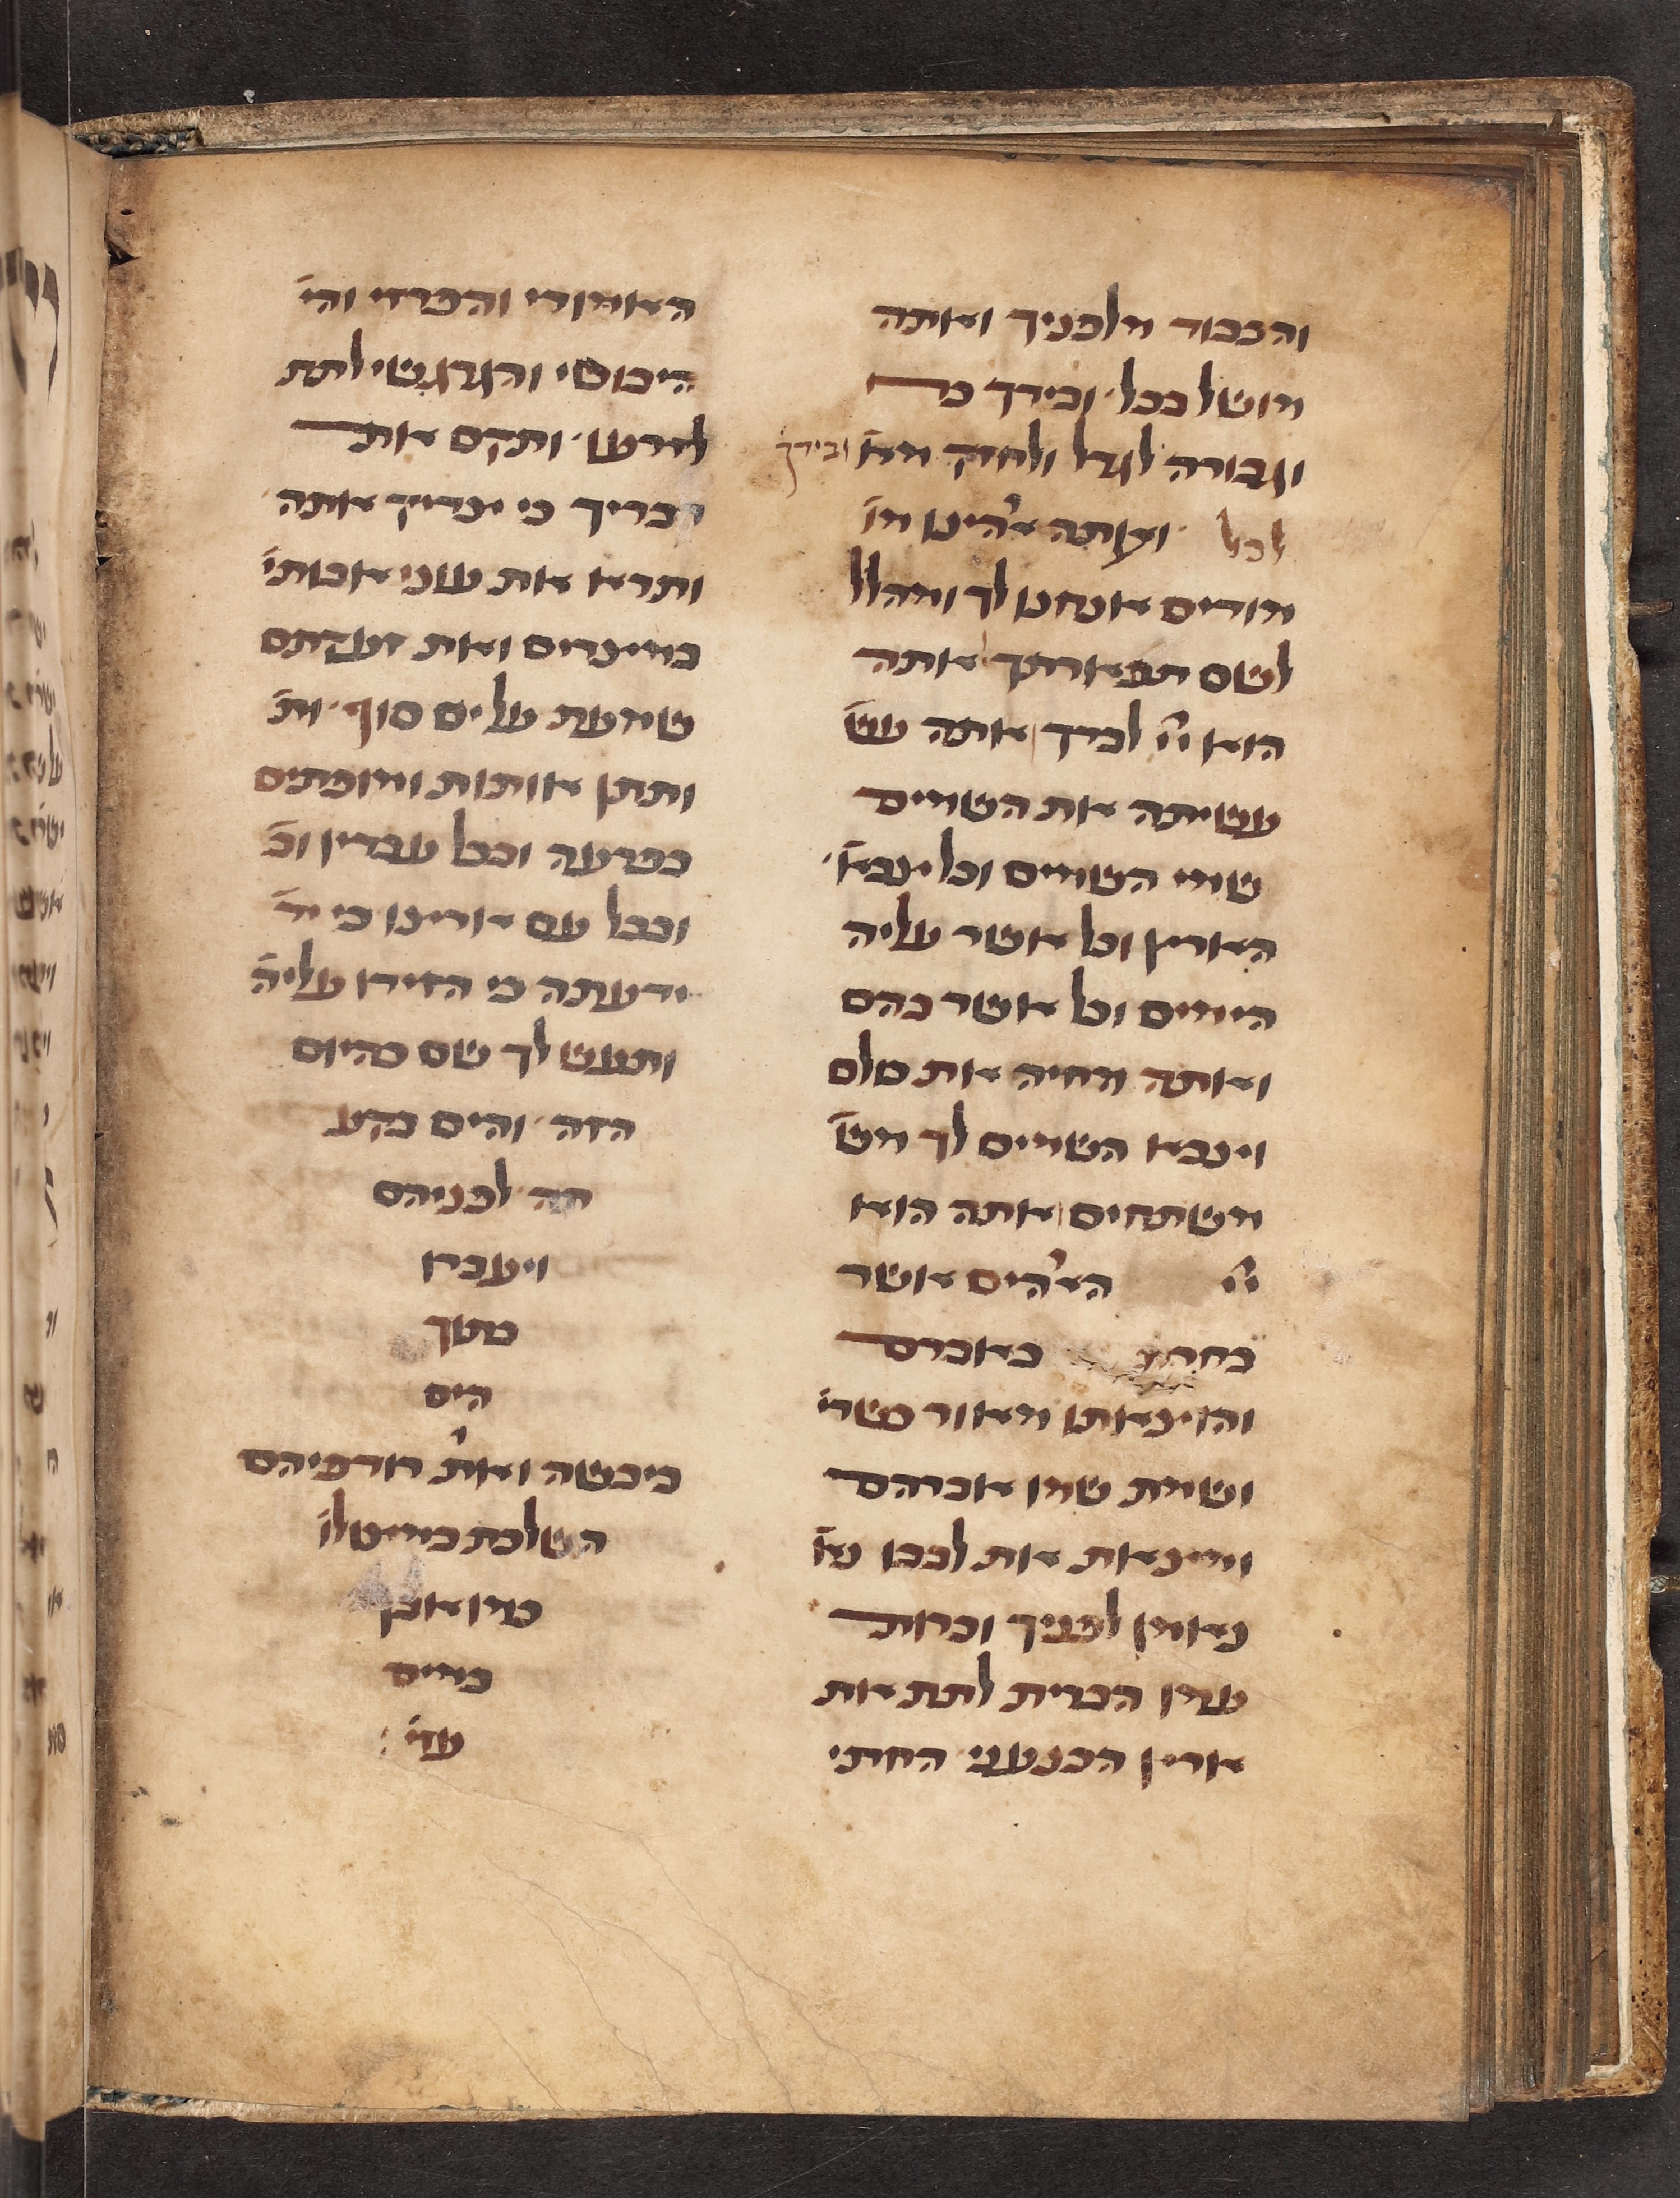 והכבוד מלפניך ואתה
מושל בכל ובידך כח
וגבורה לגדל ולחזק מא ובידך
לכל ואתה א׳הינו מו׳
מודים אנחנו לך ומהלל
לשם תפארתך אתה
הוא יי לבדך אתה עש׳
עשיתה את השמים
שמי השמים וכל צבא׳
הארץ וכל אשר עליה
הימים וכל אשר בהם
ואתה מחיה את כולם
וצבא השמים לך מש׳
משתחוים אתה הוא
יי הא׳הים אשר
בחרת באברם
והוצאתו מאור כשדי׳
ושמת שמו אברהם
ומצאת את לבבו נא׳
נאמן לפניך וכרות
עמו הברית לתת את
ארץ הכנעני החתי
האמורי והפרזי והי׳
היבוסי והגרגשי לתת
לזרעו ותקם את
דבריך כי צדיק אתה
ותרא את עני אבותי׳
במצרים ואת זעקתם
שמעת על ים סוף ות׳
ותתן אותות ומופתים
בפרעה ובכל עבדיו וב׳
ובכל עם ארצו כי יד׳
ידעתה כי הזידו עליה׳
ותעש לך שם כהיום
הזה והים בקע
תה לפניהם
ויעברו
בתוך
הים
ביבשה ואת רודפיהם
השלכת במצולו׳
כמו אבן
במים
עזי׳